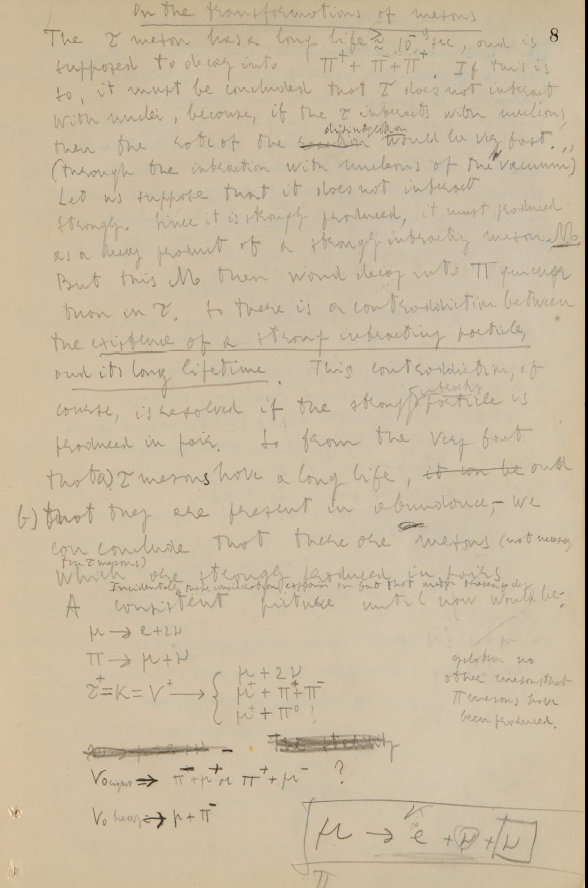 On the transformations of mesons
8
The τ meson has a long life ≳ 10⁻⁹ sec, and is
supposed to decay into π⁺ + π⁻ + π⁺. If this is
so, it must be concluded that τ does not interact
with nuclei, because, if the τ interacts with nucleons,
disintegration
then the rate of the would be very fast.
(through the interaction with nucleons of the vacuum)
Let us suppose that it does not interact
strongly. Since it is strongly produced, it must produced
as a decay product of a strongly interacting meson M.
But this M then would decay into π quicker
than in τ. So there is a contradiction between
the existence of a strong interacting particle,
and its long lifetime. This contradiction, of
course, is resolved if the strongly interacting particle is
produced in pairs. So from the very fact
that a) τ mesons have a long life, it can be and
b) that they are present in abundance, we
can conclude that there are mesons (not necess.
(the τ mesons)
which are strongly produced in pairs.
A consistent picture until now would be:
μ → e + 2ν
π → μ + ν
τ⁺ = K = V⁺ → { μ + 2ν
μ⁺ + π⁺ + π⁻
μ⁺ + π⁰ ?
no
other mesons that
π mesons have
been produced.
V₀ light → π⁻ + μ⁺ or π⁺ + μ⁻ ?
V₀ heavy → p + π⁻
μ → e + ν + ν
π